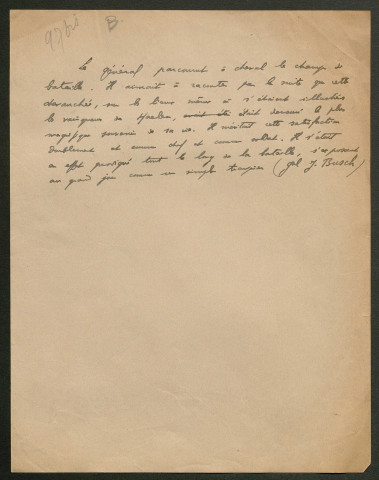 97 bis B.
Le général parcourut à cheval le champ de
bataille. Il aimait à raconter par la suite que cette
chevauchée, sur les lieux mêmes où s'étaient illustrés
les vainqueurs de Haelen, avait été était devenue le plus
magnifique souvenir de sa vie. Il méritait cette satisfaction
doublement et comme chef et comme soldat. Il s'était
en effet prodigué tout le long de la bataille, s'exposant
au grand jour comme un simple troupier (gal J. Busch)